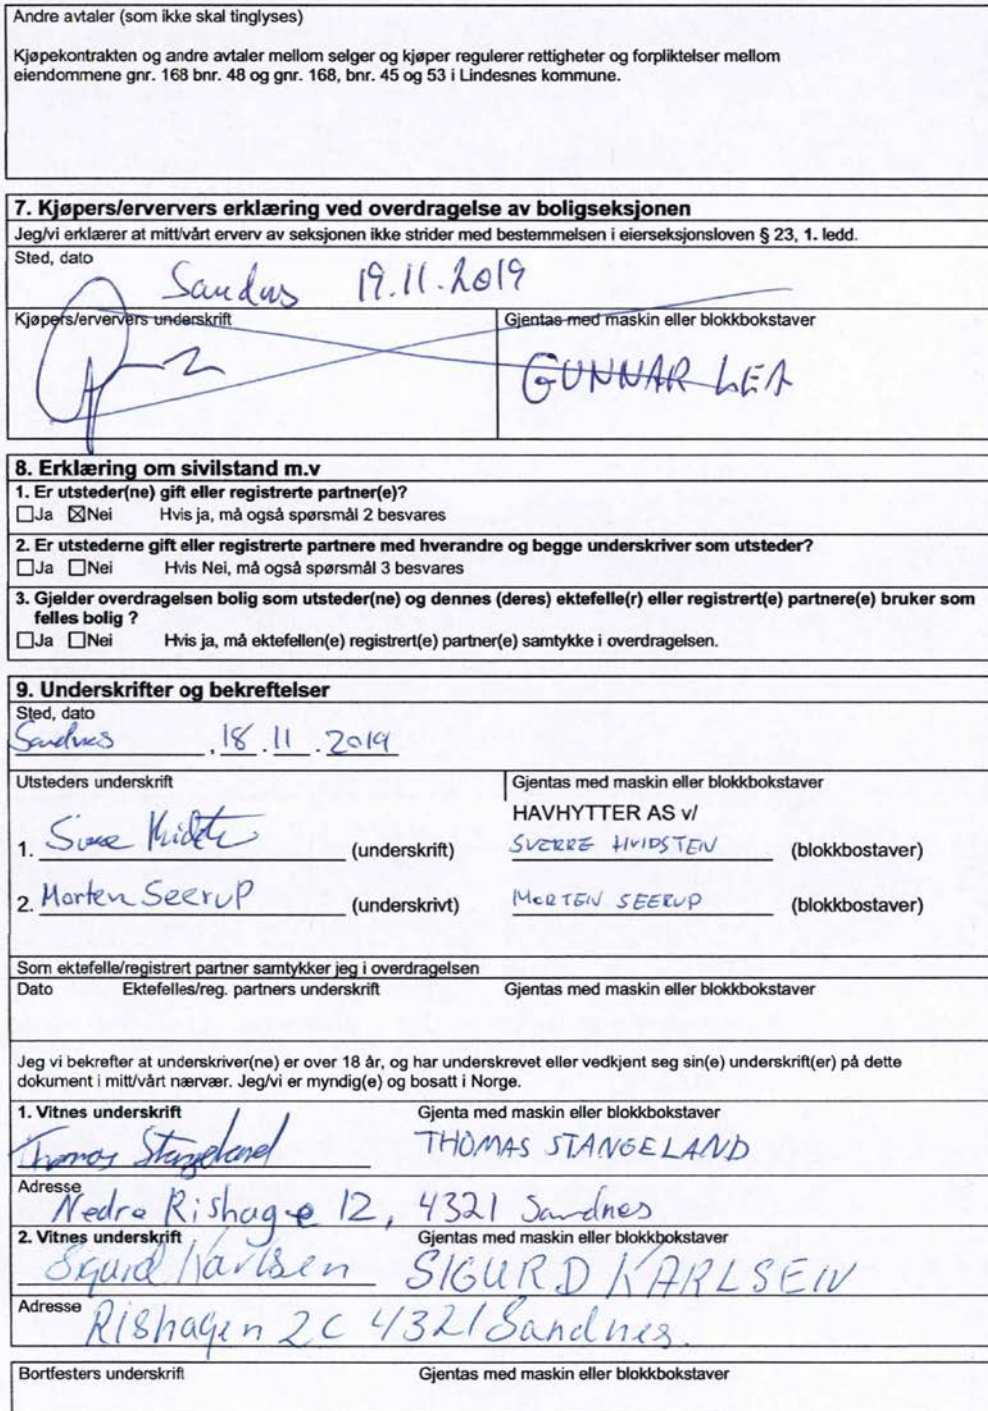 Andre avtaler (som ikke skal tinglyses)
Kjøpekontrakten og andre avtaler mellom selger og kjøper regulerer rettigheter og forpliktelser mellom
eiendommene gnr. 168 bnr. 48 og gnr. 168, bnr. 45 og 53 i Lindesnes kommune.
7. Kjøpers/erververs erklæring ved overdragelse av boligseksjonen
Jeg/vi erklærer at mitt/vårt erverv av seksjonen ikke strider med bestemmelsen i eierseksjonsloven § 23, 1. ledd.
Sted, dato
19.11.2019
Kjøpers/erververs underskrift Gjentas med maskin eller blokkbokstaver
GUNNAR LEA
8. Erklæring om sivilstand m.v
1. Er utsteder(ne) gift eller registrerte partner(e)?
☐Ja ☒Nei Hvis ja, må også spørsmål 2 besvares
2. Er utstederne gift eller registrerte partnere med hverandre og begge underskriver som utsteder?
☐Ja ☐Nei Hvis Nei, må også spørsmål 3 besvares
3. Gjelder overdragelsen bolig som utsteder(ne) og dennes (deres) ektefelle(r) eller registrert(e) partnere(e) bruker som
felles bolig ?
☐Ja ☐Nei Hvis ja, må ektefellen(e) registrert(e) partner(e) samtykke i overdragelsen.
9. Underskrifter og bekreftelser
Sted, dato
Sandnes , 18 .11 . 2019
Utsteders underskrift Gjentas med maskin eller blokkbokstaver
HAVHYTTER AS v/
1. (underskrift) SVERRE HVIDSTEN (blokkbostaver)
2. Morten Seerup (underskrivt) MORTEN SEERUP (blokkbostaver)
Som ektefelle/registrert partner samtykker jeg i overdragelsen
Dato Ektefelles/reg. partners underskrift Gjentas med maskin eller blokkbokstaver
Jeg vi bekrefter at underskriver(ne) er over 18 år, og har underskrevet eller vedkjent seg sin(e) underskrift(er) på dette
dokument i mitt/vårt nærvær. Jeg/vi er myndig(e) og bosatt i Norge.
1. Vitnes underskrift Gjenta med maskin eller blokkbokstaver
Thomas Stangeland THOMAS STANGELAND
Adresse Nedre Rishage 12, 4321 Sandnes
2. Vitnes underskrift Gjentas med maskin eller blokkbokstaver
Sigurd Karlsen SIGURD KARLSEN
Adresse Rishagen 2C 4321 Sandnes.
Bortfesters underskrift Gjentas med maskin eller blokkbokstaver